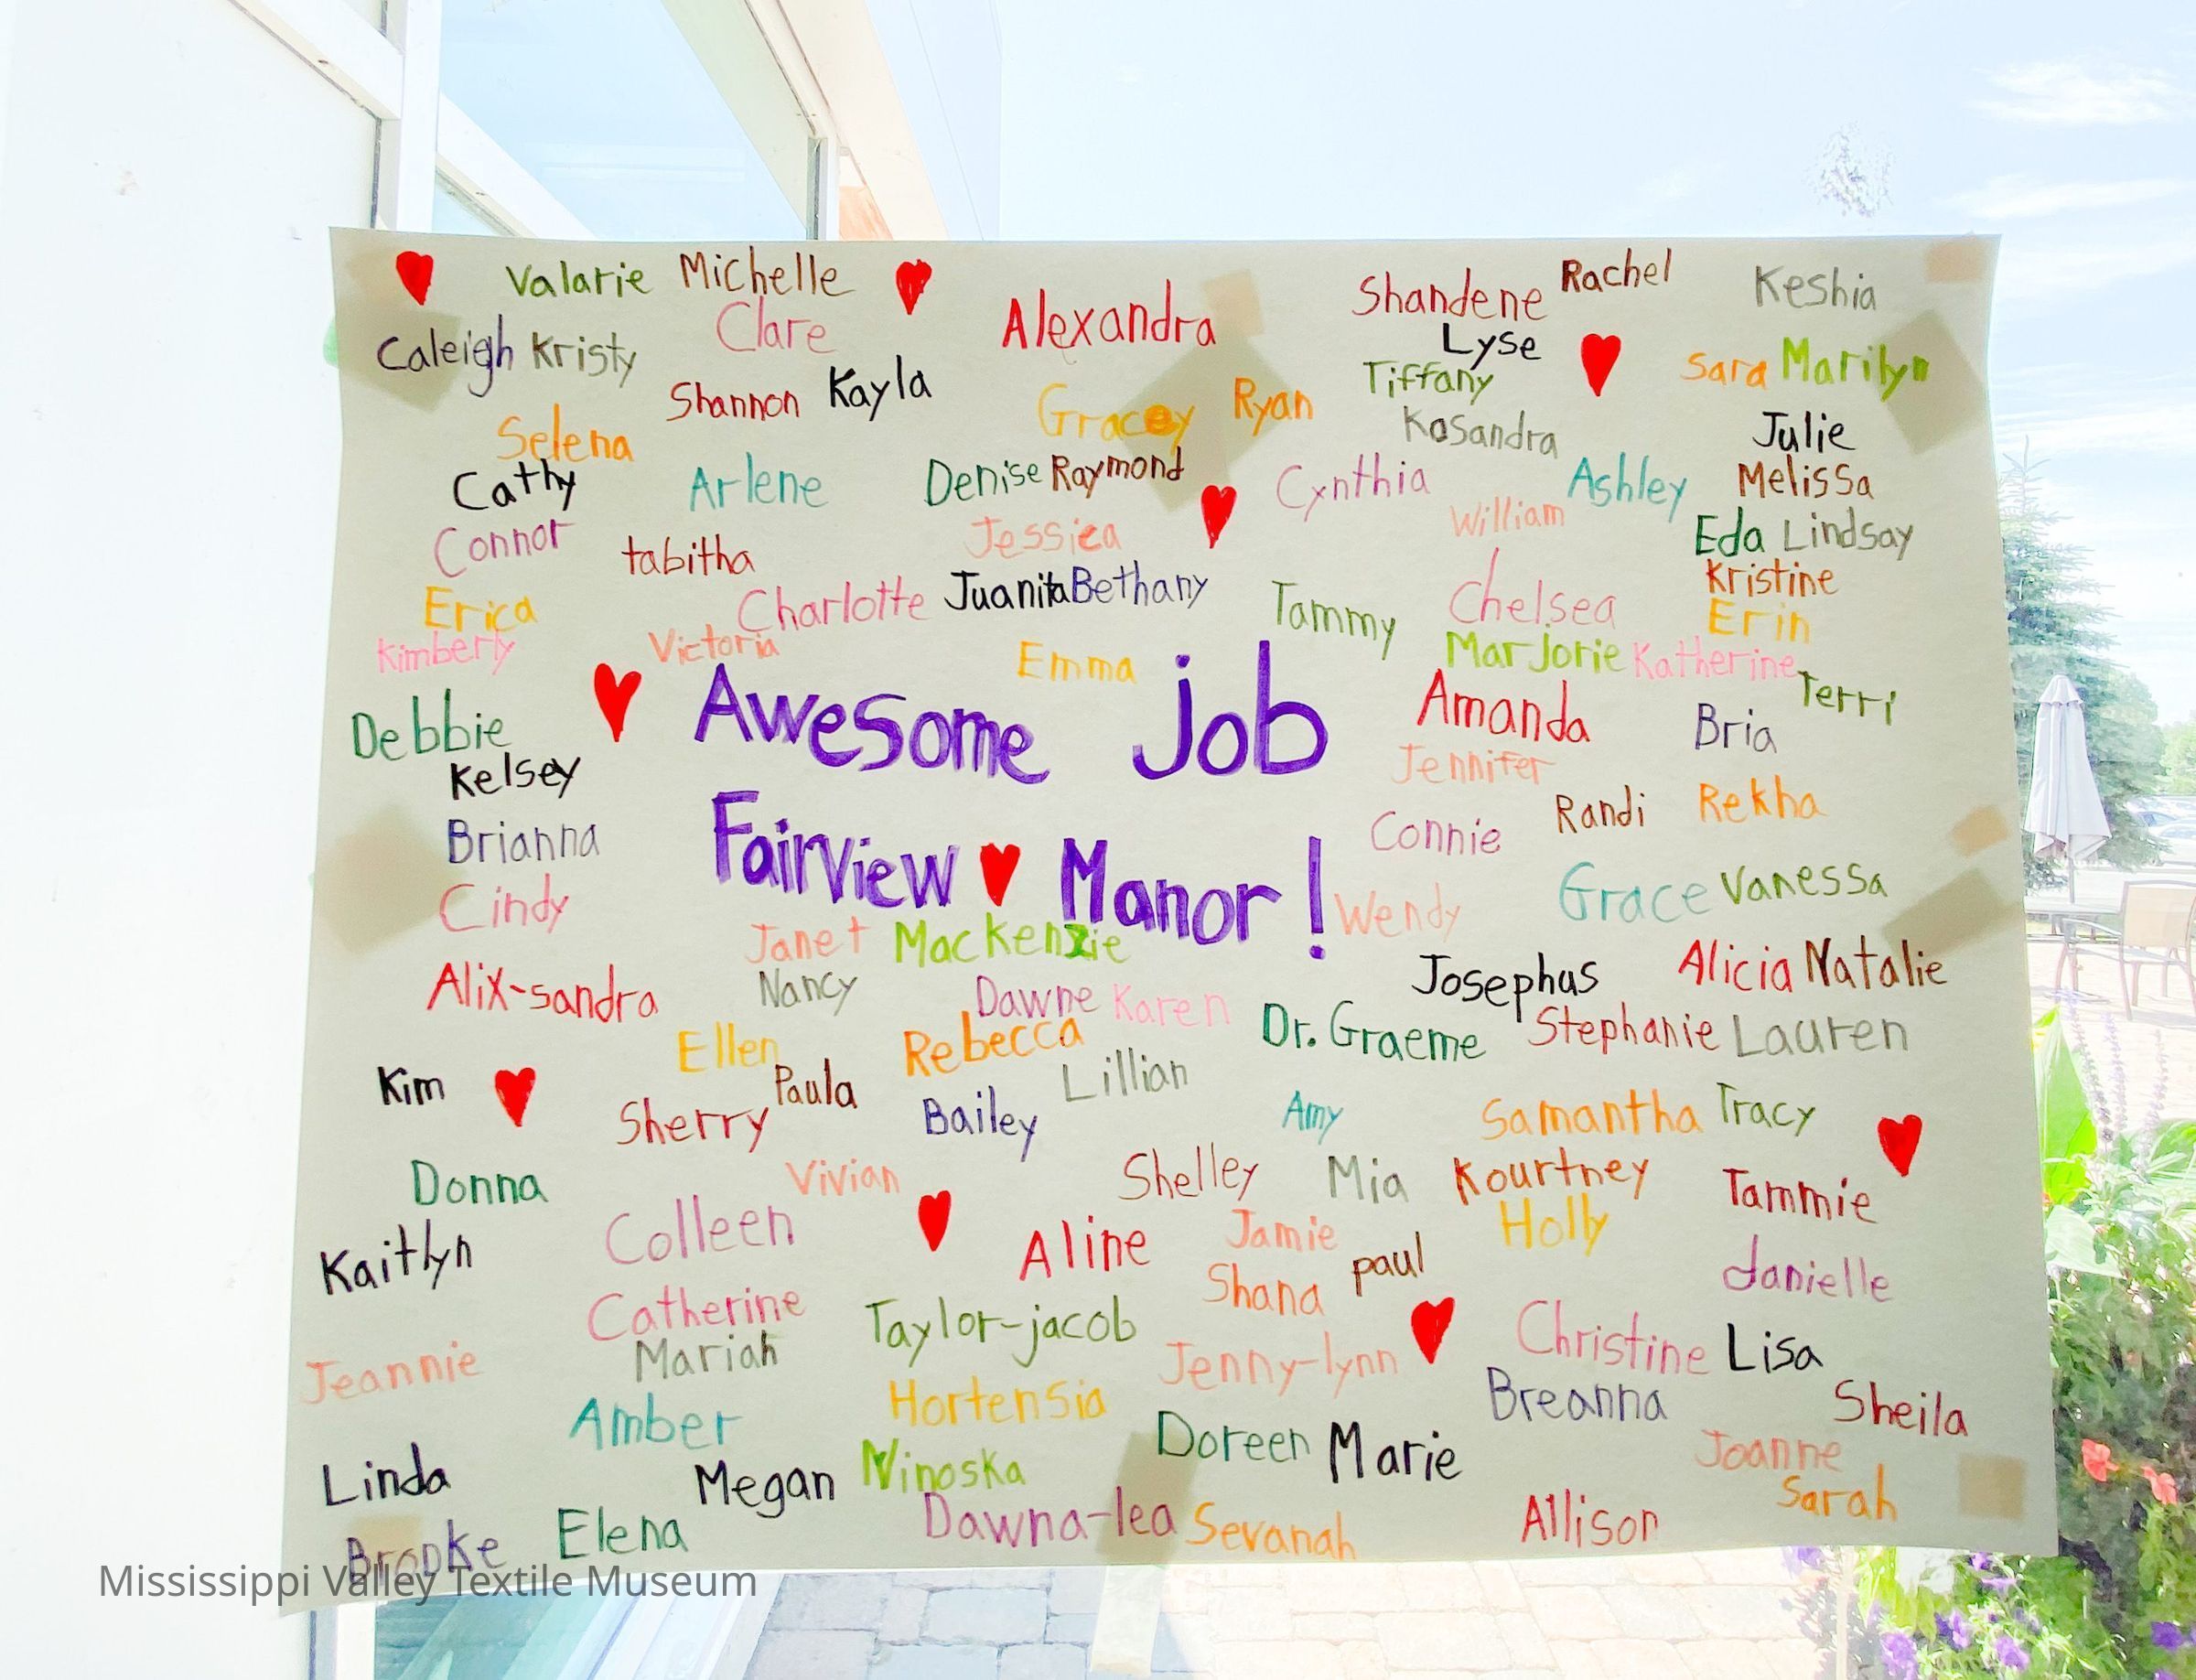 Valarie Michelle
Shandene Rachel Keshia
Caleigh Kristy Clare Alexandra
Lyse
Shannon Kayla Tiffany Sara Marilyn
Selena Gracey Ryan Kasandra Julie
Cathy Arlene Denise Raymond Cynthia Ashley Melissa
Connor tabitha Jessica William Eda Lindsay
Erica Charlotte Juanita Bethany Tammy Chelsea Kristine
Erin
Kimberly Victoria Emma Marjorie Katherine
Terri
Debbie Awesome Job Amanda Bria
Kelsey Jennifer
Randi Rekha
Brianna Fairview Manor! Connie
Cindy Wendy Grace Vanessa
Janet Mackenzie
Alix-sandra Nancy Dawne Karen Josephus Alicia Natalie
Ellen Rebecca Dr. Graeme Stephanie Lauren
Kim Paula Lillian
Sherry Bailey Amy Samantha Tracy
Donna Vivian Shelley Mia Kourtney Tammie
Kaitlyn Colleen Aline Jamie paul Holly
danielle
Catherine Taylor-jacob Shana
Jeannie Mariah Jenny-lynn Christine Lisa
Amber Hortensia Breanna Sheila
Linda Megan Ninoska Doreen Marie Joanne
Sarah
Brooke Elena Dawna-lea Sevanah Allison
Mississippi Valley Textile Museum